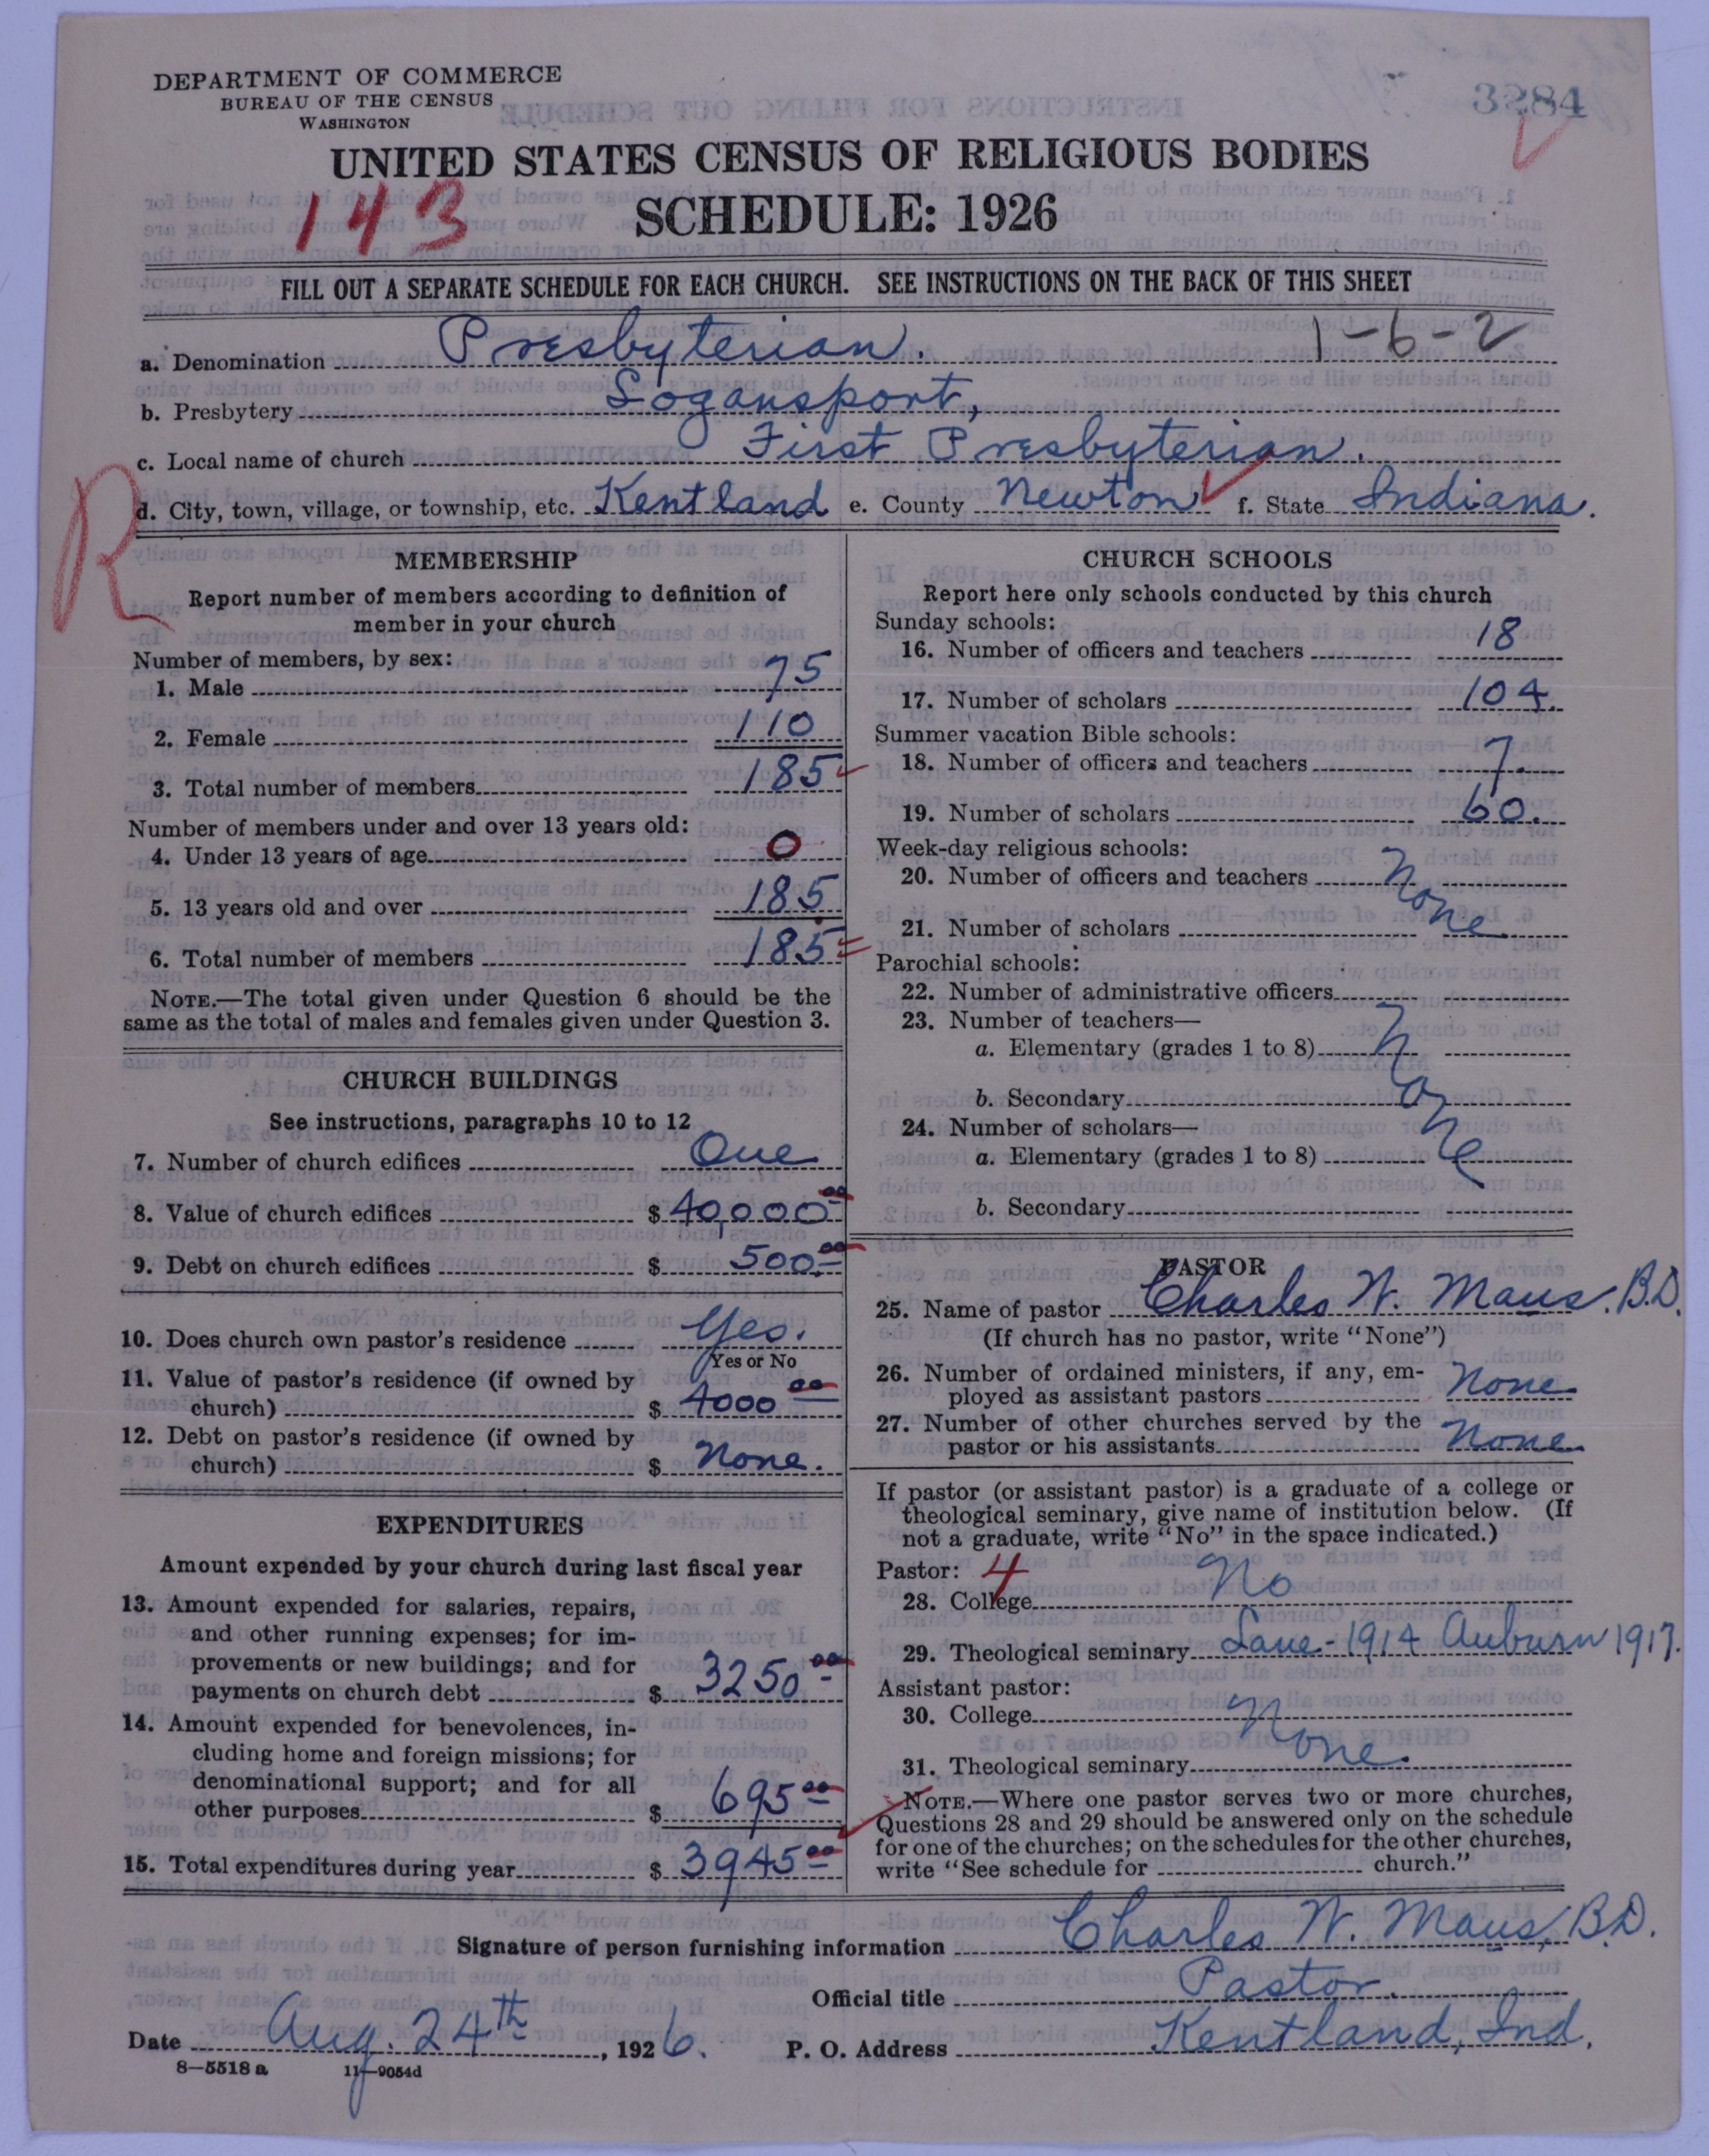 DEPARTMENT OF COMMERCE
BUREAU OF THE CENSUS
WASHINGTON
3284
UNITED STATES CENSUS OF RELIGIOUS BODIES
143
SCHEDULE: 1926
FILL OUT A SEPARATE SCHEDULE FOR EACH CHURCH. SEE INSTRUCTIONS ON THE BACK OF THIS SHEET
1-6-2
a. Denomination Presbyterian.
b. Presbytery Logansport,
c. Local name of church First Presbyterian.
R
d. City, town, village, or township, etc. Kentland e. County Newton f. State Indiana.
MEMBERSHIP
Report number of members according to definition of
member in your church
Number of members, by sex:
1. Male 75
2. Female 110
3. Total number of members 185
Number of members under and over 13 years old:
4. Under 13 years of age 0
5. 13 years old and over 185
6. Total number of members 185
NOTE.—The total given under Question 6 should be the
same as the total of males and females given under Question 3.
CHURCH BUILDINGS
See instructions, paragraphs 10 to 12
7. Number of church edifices One
8. Value of church edifices $ 40,000 00
9. Debt on church edifices $ 500.00
10. Does church own pastor's residence Yes.
Yes or No
11. Value of pastor's residence (if owned by
church) $ 4000 00
12. Debt on pastor's residence (if owned by
church) $ None.
EXPENDITURES
Amount expended by your church during last fiscal year
13. Amount expended for salaries, repairs,
and other running expenses; for im-
provements or new buildings; and for
payments on church debt $ 3250 00
14. Amount expended for benevolences, in-
cluding home and foreign missions; for
denominational support; and for all
other purposes $ 695 00
15. Total expenditures during year $ 3945 00
CHURCH SCHOOLS
Report here only schools conducted by this church
Sunday schools:
16. Number of officers and teachers 18
17. Number of scholars 104.
Summer vacation Bible schools:
18. Number of officers and teachers 7.
19. Number of scholars 60.
Week-day religious schools:
20. Number of officers and teachers None
21. Number of scholars
Parochial schools:
22. Number of administrative officers
23. Number of teachers—
a. Elementary (grades 1 to 8) None
b. Secondary
24. Number of scholars—
a. Elementary (grades 1 to 8)
b. Secondary
PASTOR
25. Name of pastor Charles W. Maus. B.D.
(If church has no pastor, write "None")
26. Number of ordained ministers, if any, em-
ployed as assistant pastors None
27. Number of other churches served by the
pastor or his assistants None
If pastor (or assistant pastor) is a graduate of a college or
theological seminary, give name of institution below. (If
not a graduate, write "No" in the space indicated.)
Pastor: 4
28. College No
29. Theological seminary Lane-1914 Auburn 1917.
Assistant pastor:
30. College None.
31. Theological seminary
NOTE.—Where one pastor serves two or more churches,
Questions 28 and 29 should be answered only on the schedule
for one of the churches; on the schedules for the other churches,
write "See schedule for church."
Signature of person furnishing information Charles W. Maus, B.D.
Official title Pastor.
Date Aug. 24th, 1926. P. O. Address Kentland, Ind.
8—5518 a 11—9054d